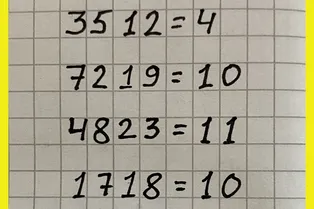 3512=4
7219=10
4823=11
1718=10